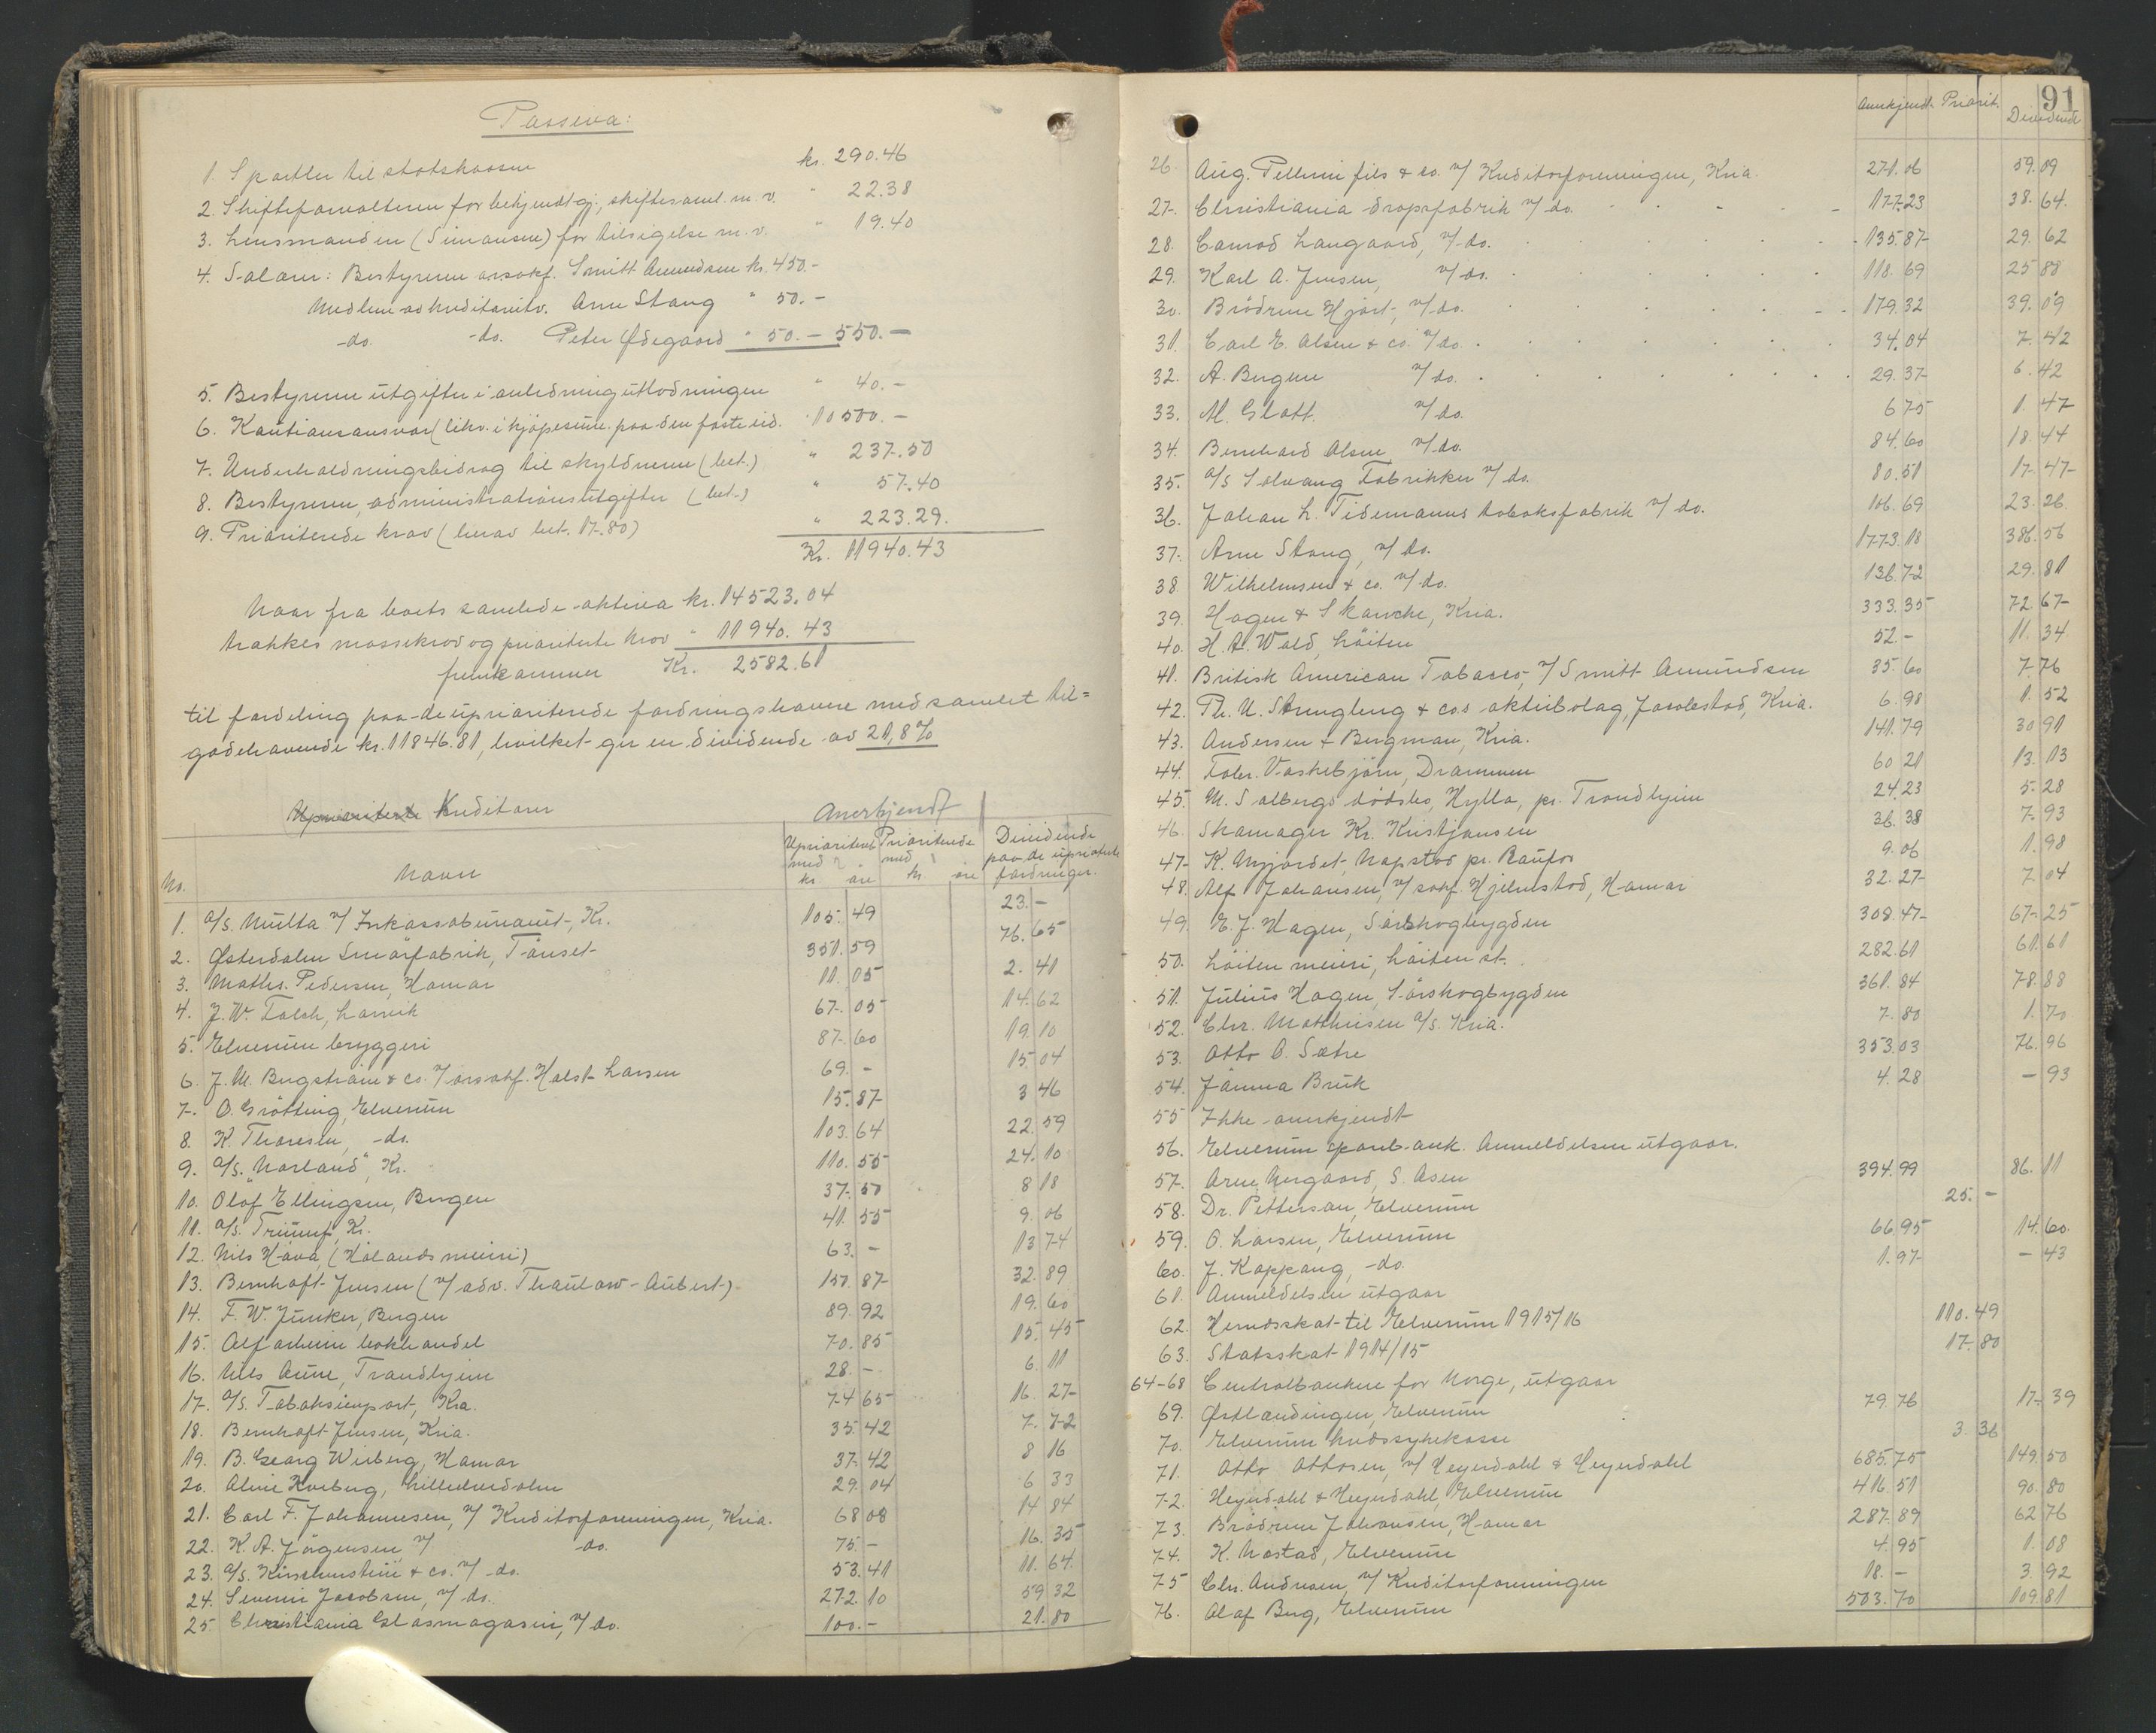 Passiva:
1. Sportler til statskassen kr. 290.46
2. Skifteforvalteren for bekjendtgj., skiftesaml. m. v. " 22.38
3. Lensmanden (Simonsen) for tilsigelse m. v. " 19.40
4. Salærer: Bestyreren orsakf. Smitt Amundsen kr. 450.-
Medlem av kreditorutv. Arne Stang " 50.-
-do. -do. Peter Ødegaard " 50.- 550.-
5. Bestyrerens utgifter i anledning utlodningen " 40.-
6. Kautionsansvar (likv. i kjøpesum. paa den faste eid. " 10500.-
7. Underholdningsbidrag til skyldneren (bet.) " 237.50
8. Bestyreren, administrationsutgifter (bet.) " 57.40
9. Prioriterede krav (herav bet. 17.80) " 223.29.
Kr. 11940.43
Naar fra boets samlede aktiva kr. 14523.04
trækkes massekrav og prioriterte krav " 11940.43
fremkommer Kr. 2582.61
til fordeling paa de uprioriterede fordringshavere med samlet til=
godehavende kr. 11846.81, hvilket gir en dividende av 21,8%
Uprioriterte Kreditorer Anerkjendt
No. Navn Uprioritert med kr. øre Prioriterede med kr. øre Dividende paa de uprioriterte fordringer.
1. A/S. Multa v/ Inkassobureauet, Kr. 105.49 23.-
2. Østerdalen Smørfabrik, Tønset 351.59 76.65
3. Maths. Pedersen, Hamar 11.05 2.41
4. J. W. Falch, Larvik 67.05 14.62
5. Elverum bryggeri 87.60 19.10
6. J. M. Bergstrøm & co. v/ orsakf. Holst-Larsen 69.- 15.04
7. O. Grötting, Elverum 15.87 3.46
8. K. Thoresen, -do. 103.64 22.59
9. A/S. "Norland", Kr. 110.55 24.10
10. Olaf Ellingsen, Bergen 37.50 8.18
11. A/S. Triumf, Kr. 41.55 9.06
12. Nils Håvå, (Hålands meieri) 63.- 13.74
13. Bernhoft-Jensen (v/ adv. Thaulow-Aubert) 150.87 32.89
14. F. W. Junker, Bergen 89.92 19.60
15. Alfarheim bokhandel 70.85 15.45
16. Nils Aune, Trondhjem 28.- 6.11
17. A/S. Tobaksimport, Kra. 74.65 16.27
18. Bernhoft-Jensen, Kria. 35.42 7.72
19. B. Georg Wiberg, Hamar 37.42 8.16
20. Aline Korberg, Lilleherdalen 29.04 6.33
21. Carl F. Johannesen, v/ Kreditorforeningen, Kria. 68.08 14.84
22. K. A. Jörgensen v/ -do. 75.- 16.35
23. A/S. Kirschenstein & co. v/ -do. 53.41 11.64.
24. Severin Jacobsen, v/ do. 272.10 59.32
25. Christiania Glasmagasin, v/ do. 100.- 21.80
91
Anerkjendt. Priorit. Dividende
26. Aug. Pellerin fils & co. v/ Kreditorforeningen, Kria. 271.06 59.09
27. Christiania dropsfabrik v/ do. 177.23 38.64.
28. Conrad Langaard, v/ do. 135.87 29.62
29. Karl A. Jensen, v/ do. 118.69 25.88
30. Brödrene Hjort, v/ do. 179.32 39.09
31. Carl E. Olsen & co. v/ do. 34.04 7.42
32. A. Bergene v/ do. 29.37 6.42
33. M. Glott v/ do. 6.75 1.47
34. Bernhard Olsen, v/ do. 84.60 18.44
35. A/S Solvang Fabrikker v/ do. 80.51 17.47
36. Johan L. Tidemanns tobaksfabrik v/ do. 106.69 23.26.
37. Arne Stang, v/ do. 1773.18 386.56
38. Wilhelmsen & co. v/ do. 136.72 29.81
39. Hagen & Skancke, Kria. 333.35 72.67
40. H. A. Wold, Löiten 52.- 11.34
41. British American Tobacco, v/ Smitt Amundsen 35.60 7.76
42. Ph. U. Strengberg & co.s aktiebolag, Jacobstad, Kria. 6.98 1.52
43. Andersen & Bergman, Kria. 141.79 30.91
44. Fabr. Vaskebjörn, Drammen 60.21 13.13
45. M. Solbergs dödsbo, Hylla, pr. Trondhjem 24.23 5.28
46. Skomager Kr. Kristjansen 36.38 7.93
47. K. Nyjordet, Napstad pr. Raufos 9.06 1.98
48. Alf Johansen, v/ sakf. Hjelmstad, Hamar 32.27 7.04
49. E. J. Hagen, Sörskogbygden 308.47 67.25
50. Löiten meieri, Löiten st. 282.61 61.61
51. Julius Hagen, Sörskogbygden 361.84 78.88
52. Chr. Mathiesen A/S. Kria. 7.80 1.70
53. Otto O. Sætre 353.03 76.96
54. Jömna Bruk 4.28 -.93
55 Ikke anerkjendt
56. Elverum sparebank. Anmeldelsen utgaar.
57. Arne Norgaard, S. Åsen 394.99 86.11
58. Dr. Petterson, Elverum 25.-
59. O. Larsen, Elverum 66.95 14.60.
60. J. Koppang, -do. 1.97 -.43
61. Anmeldelsen utgaar
62. Herredsskat til Elverum 1915/16 110.49
63. Statsskat 1914/15 17.80
64-68 Centralbanken for Norge, utgaar
69. Østlendingen, Elverum 79.76 17.39
70. Elverum kredssykekasse 3.36
71. Otto Ottosen, v/ Heyerdahl & Heyerdahl 685.75 149.50
72. Heyerdahl & Heyerdahl, Elverum 416.51 90.80
73. Brødrene Johansen, Hamar 287.89 62.76
74. K. Nostad, Elverum 4.95 1.08
75 Chr. Andresen, v/ Kreditorforeningen 18.- 3.92
76. Olaf Berg, Elverum 503.70 109.81